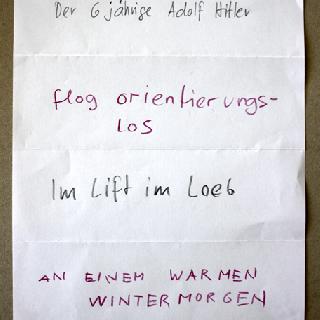 Der 6 jährige Adolf Hitler
flog orientierungs-
los
Im Lift im Loeb
AN EINEM WARMEN
WINTERMORGEN